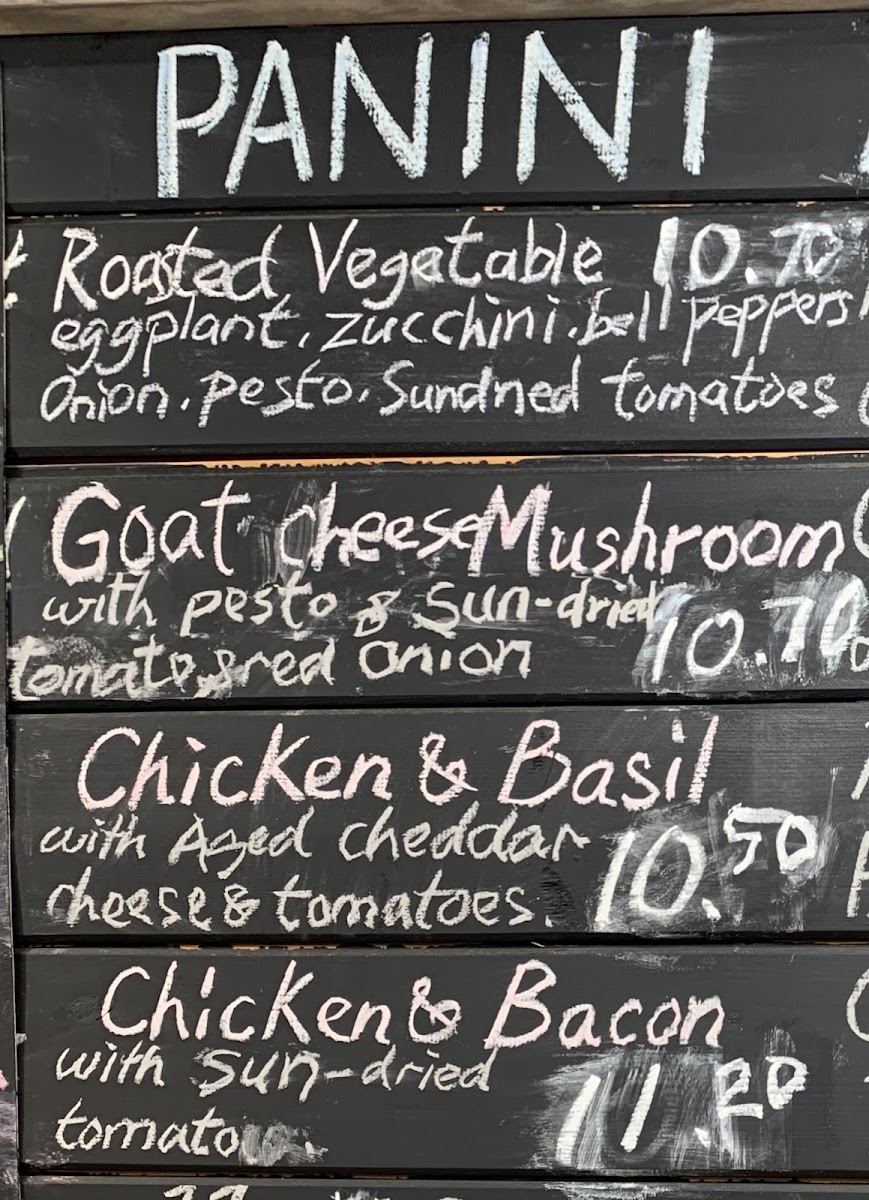 PANINI
Roasted Vegetable 10.70
eggplant, zucchini, bell peppers
Onion, pesto, Sundried tomatoes
Goat cheese Mushroom
with pesto & Sun-dried
tomato & red onion 10.70
Chicken & Basil
with Aged cheddar
cheese & tomatoes. 10.50
Chicken & Bacon
with sun-dried
tomato 11.20